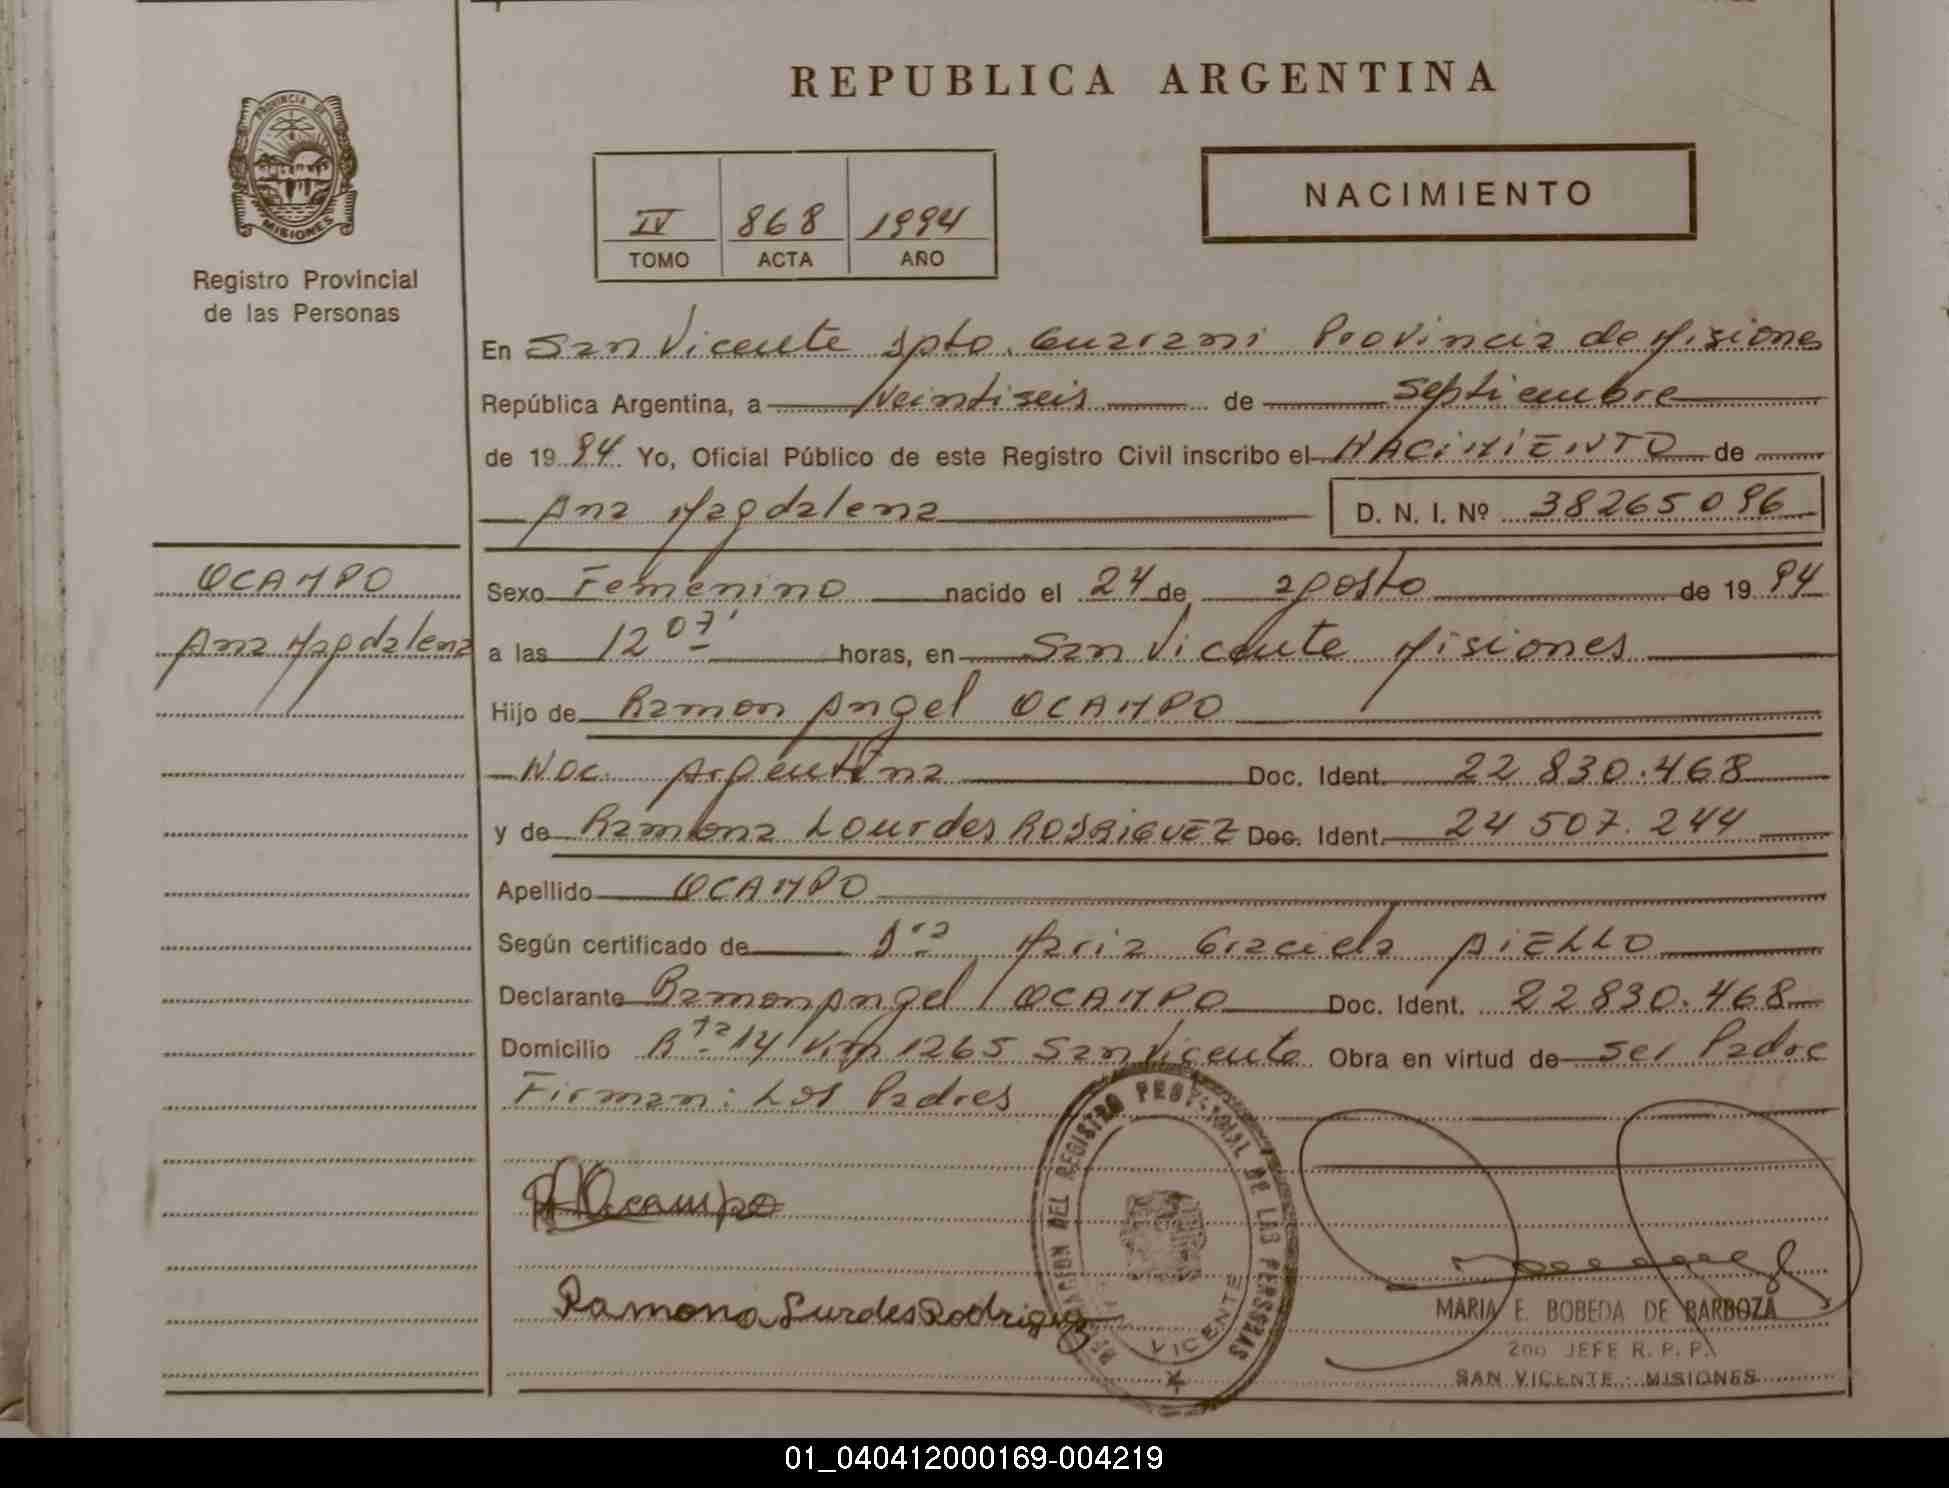 REPUBLICA ARGENTINA
PROVINCIA DE
MISIONES
Registro Provincial
de las Personas
NACIMIENTO
IV 868 1994
TOMO ACTA AÑO
En San Vicente Dpto. Guarani Provincia de Misiones
República Argentina, a veintiseis de septiembre
de 19 94 Yo, Oficial Público de este Registro Civil inscribo el NACIMIENTO de
Ana Magdalena D. N. I. Nº 38265096
OCAMPO
Ana Magdalena
Sexo Femenino nacido el 24 de agosto de 19 94
a las 12 07' horas, en San Vicente Misiones
Hijo de Ramon Angel OCAMPO
Nac. Argentina Doc. Ident. 22 830.468
y de Ramona Lourdes RODRIGUEZ Doc. Ident. 24 507.244
Apellido OCAMPO
Según certificado de Dra Maria Graciela AIELLO
Declarante Ramon Angel OCAMPO Doc. Ident. 22830.468
Domicilio Rta 14 Km 1265 San Vicente Obra en virtud de ser Padre
Firman: Los Padres
Ocampo
Ramona Lurdes Rodriguez
DEL REGISTRO PROVINCIAL DE LAS PERSONAS
VICENTE
MARIA E. BOBEDA DE BARBOZA
2do JEFE R. P. P.
SAN VICENTE - MISIONES
01_040412000169-004219